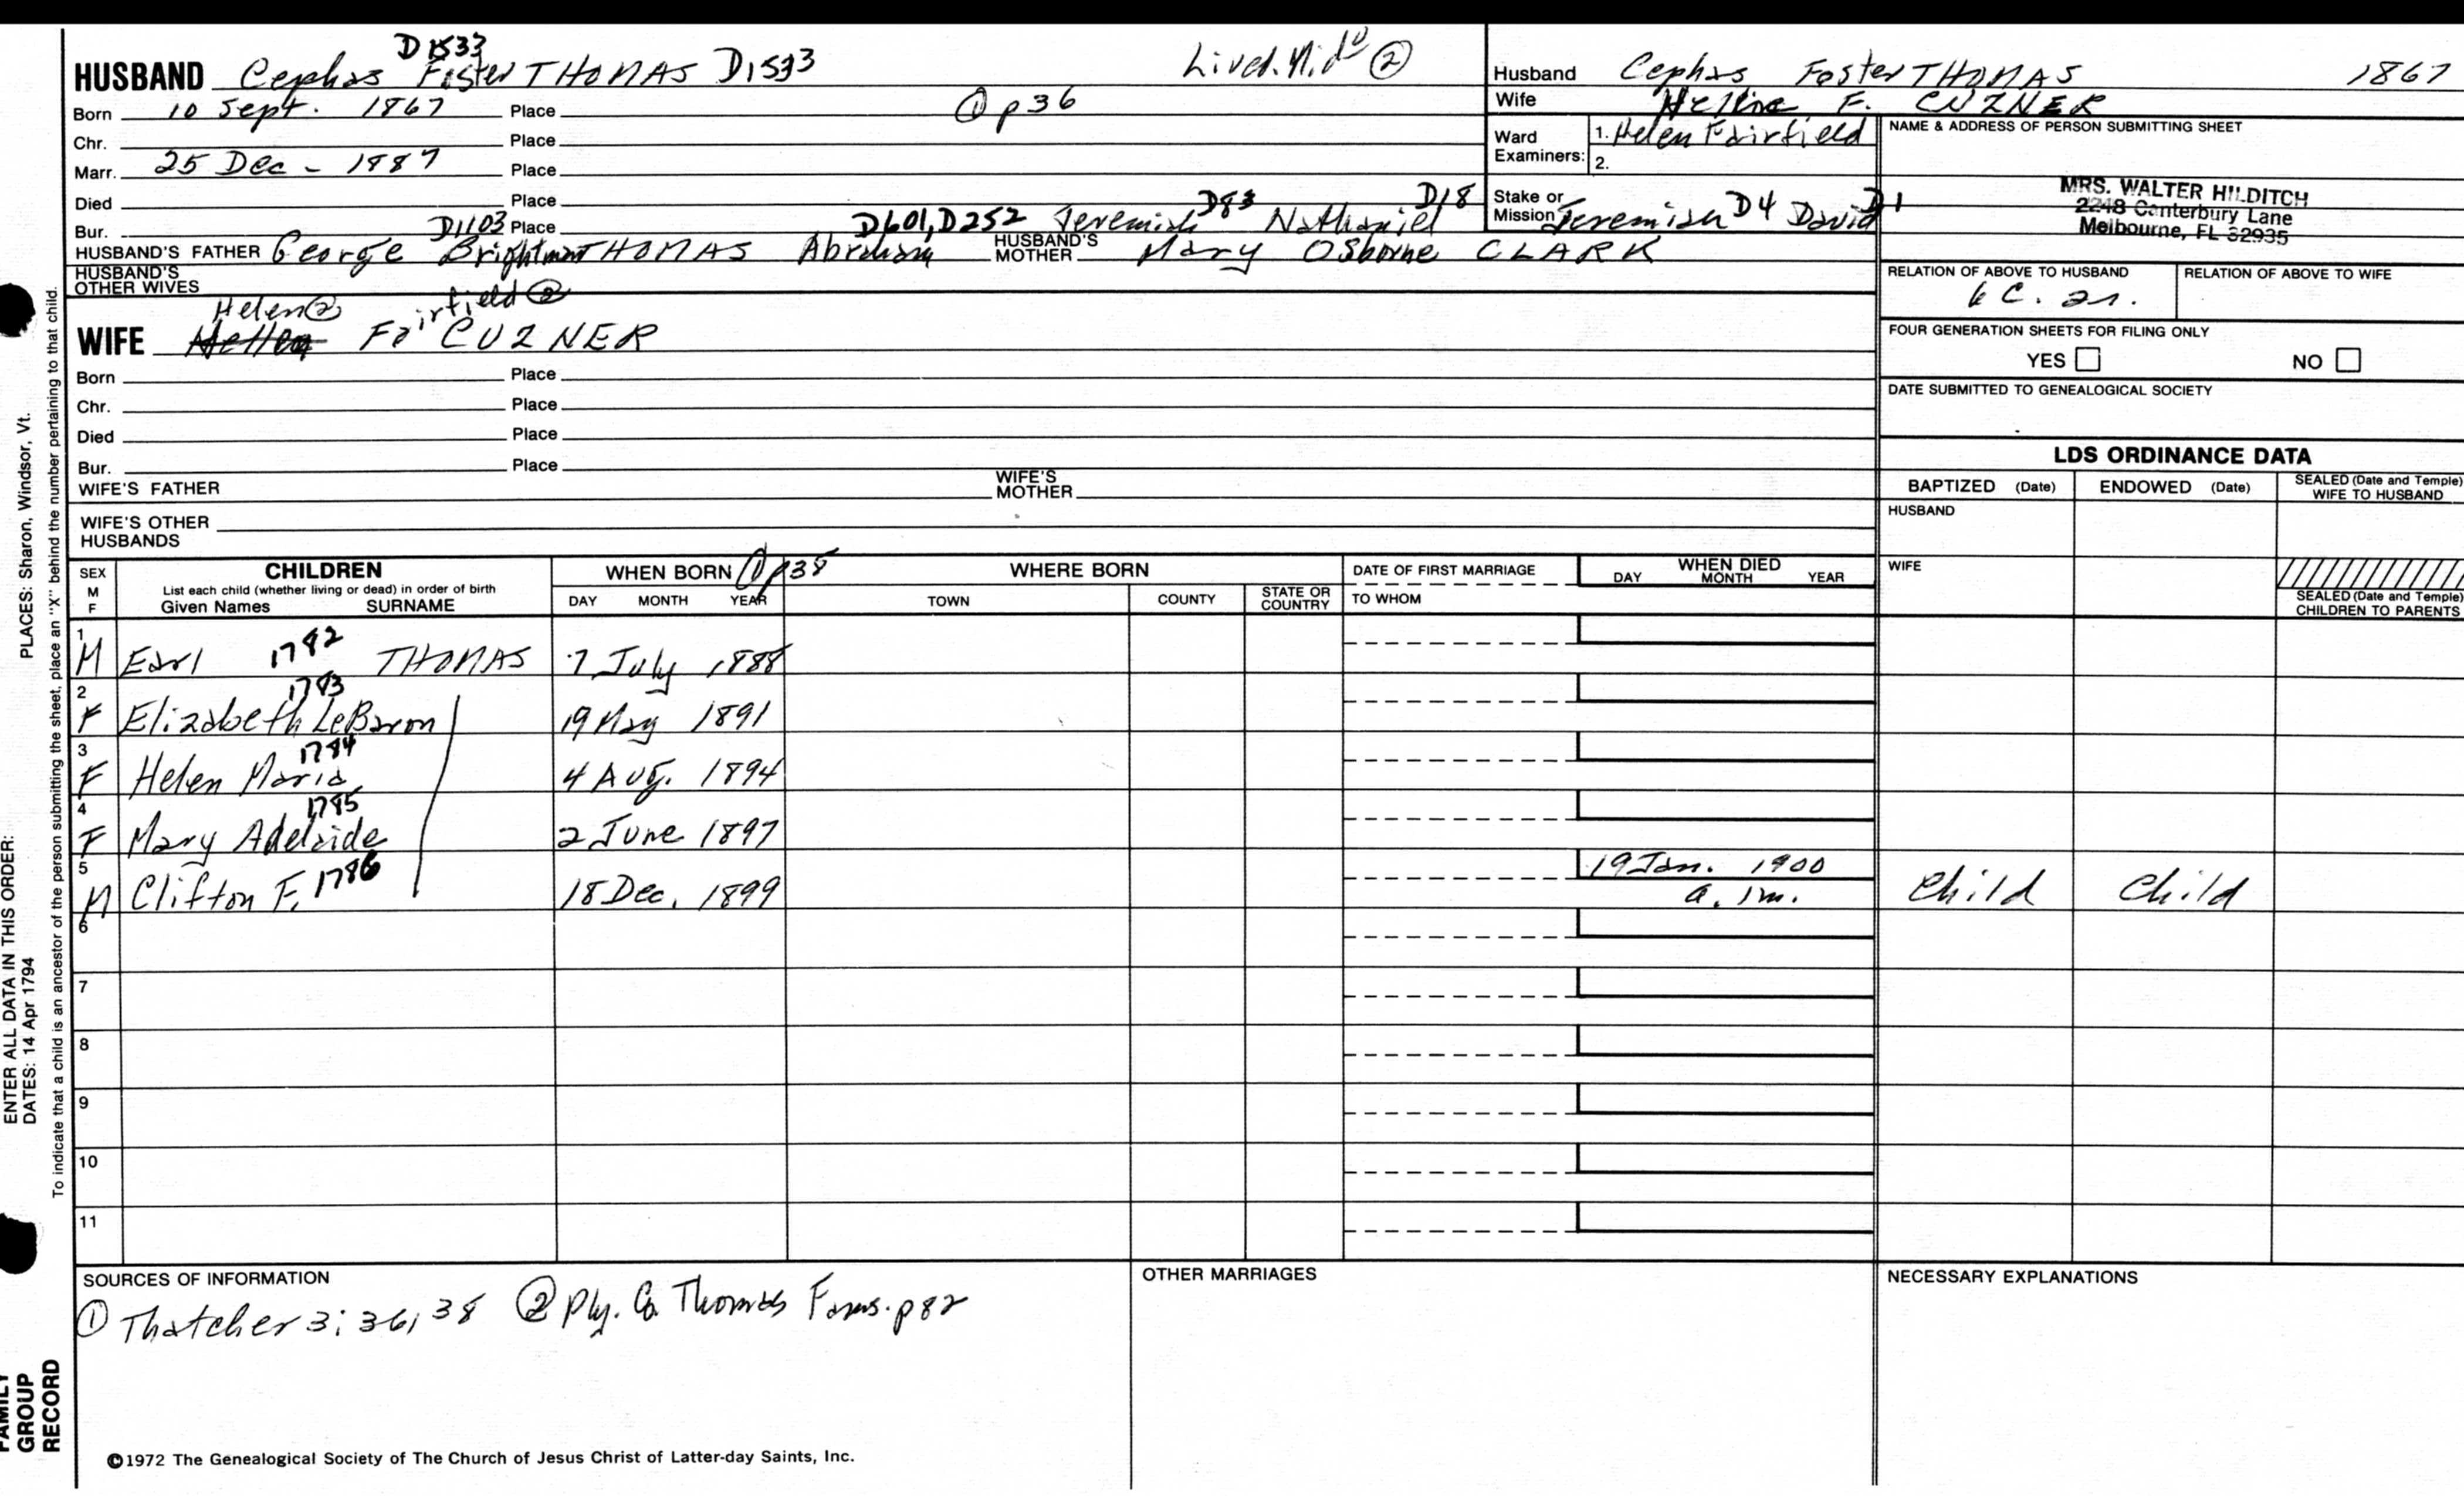 D1533
HUSBAND Cephas Foster THOMAS D1533 Lived. Mid° ②
Born 10 Sept. 1867 Place ① p36
Chr. Place
Marr. 25 Dec - 1887 Place
Died Place
Bur. D1103 Place D601, D252 Jeremiah D83 Nathaniel D18
HUSBAND'S FATHER George Brightman THOMAS Abraham HUSBAND'S MOTHER Mary Osborne CLARK
HUSBAND'S OTHER WIVES
Helen② Fairfield②
WIFE Hellen Fa CUZNER
Born Place
Chr. Place
Died Place
Bur. Place
WIFE'S FATHER WIFE'S MOTHER
WIFE'S OTHER HUSBANDS
Husband Cephas Foster THOMAS 1867
Wife F. CUZNER
Ward Examiners: 1. Helen Fairfield
2.
Stake or Mission Jeremiah D4 David D1
NAME & ADDRESS OF PERSON SUBMITTING SHEET
MRS. WALTER HILDITCH
2248 Canterbury Lane
Melbourne, FL 32935
RELATION OF ABOVE TO HUSBAND RELATION OF ABOVE TO WIFE
6 C. 2r.
FOUR GENERATION SHEETS FOR FILING ONLY
YES NO
DATE SUBMITTED TO GENEALOGICAL SOCIETY
LDS ORDINANCE DATA
BAPTIZED (Date) ENDOWED (Date) SEALED (Date and Temple) WIFE TO HUSBAND
HUSBAND
WIFE
SEALED (Date and Temple) CHILDREN TO PARENTS
SEX M F CHILDREN WHEN BORN ① p38 WHERE BORN DATE OF FIRST MARRIAGE WHEN DIED
List each child (whether living or dead) in order of birth
Given Names SURNAME DAY MONTH YEAR TOWN COUNTY STATE OR COUNTRY TO WHOM DAY MONTH YEAR
1 M Earl 1782 THOMAS 7 July 1888
2 F Elizabeth LeBaron 1783 19 May 1891
3 F Helen Maria 1784 4 Aug. 1894
4 F Mary Adelaide 1785 2 June 1897
5 M Clifton F. 1786 18 Dec. 1899 19 Jan. 1900 a. 1m. Child Child
6
7
8
9
10
11
SOURCES OF INFORMATION
① Thatcher 3: 36, 38 ② Ply. Co. Thomas Fams. p82
OTHER MARRIAGES
NECESSARY EXPLANATIONS
©1972 The Genealogical Society of The Church of Jesus Christ of Latter-day Saints, Inc.
ENTER ALL DATA IN THIS ORDER:
DATES: 14 Apr 1794 PLACES: Sharon, Windsor, Vt.
To indicate that a child is an ancestor of the person submitting the sheet, place an "X" behind the number pertaining to that child.
FAMILY GROUP RECORD